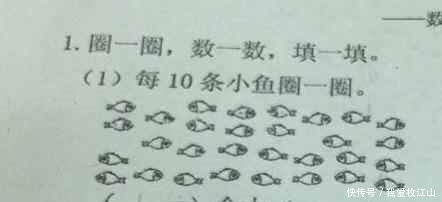 ——数
1. 圈一圈，数一数，填一填。
（1）每 10 条小鱼圈一圈。
快传号 / 我爱枚江山